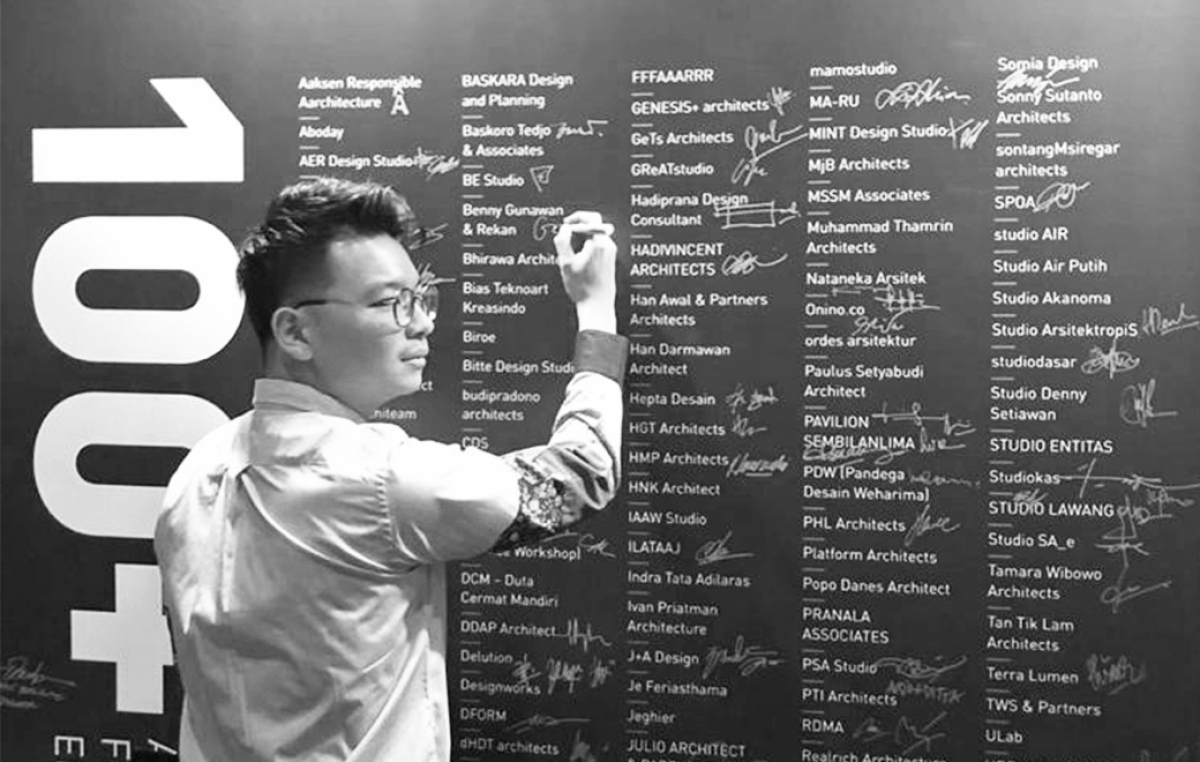 100+
Aaksen Responsible
Aarchitecture
Aboday
AER Design Studio
BASKARA Design
and Planning
Baskoro Tedjo
& Associates
BE Studio
Benny Gunawan
& Rekan
Bhirawa
Bias Teknoart
Kreasindo
Biroe
Bitte Design
budipradono
architects
CDS
Workshop)
DCM - Duta
Cermat Mandiri
DDAP Architect
Delution
Designworks
DFORM
dHDT architects
FFFAAARRR
GENESIS+ architects
GeTs Architects
GReATstudio
Hadiprana Design
Consultant
HADIVINCENT
ARCHITECTS
Han Awal & Partners
Architects
Han Darmawan
Architect
Hepta Desain
HGT Architects
HMP Architects
HNK Architect
IAAW Studio
ILATAAJ
Indra Tata Adilaras
Ivan Priatman
Architecture
J+A Design
Je Feriasthama
Jeghier
JULIO ARCHITECT
mamostudio
MA-RU
MINT Design Studio
MjB Architects
MSSM Associates
Muhammad Thamrin
Architects
Nataneka Arsitek
Onino.co
ordes arsitektur
Paulus Setyabudi
Architect
PAVILION
SEMBILANLIMA
PDW (Pandega
Desain Weharima)
PHL Architects
Platform Architects
Popo Danes Architect
PRANALA
ASSOCIATES
PSA Studio
PTI Architects
RDMA
Realrich
Somia Design
Sonny Sutanto
Architects
sontangMsiregar
architects
SPOA
studio AIR
Studio Air Putih
Studio Akanoma
Studio ArsitektropiS
studiodasar
Studio Denny
Setiawan
STUDIO ENTITAS
Studiokas
STUDIO LAWANG
Studio SA_e
Tamara Wibowo
Architects
Tan Tik Lam
Architects
Terra Lumen
TWS & Partners
ULab